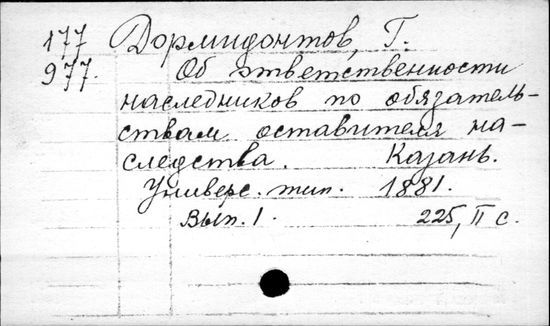 177 Дормидонтов, Г.
977. Об ответственности
наследников по обязатель-
ствам оставителя на-
следства. Казань.
Универс. тип. 1881.
Вып. 1. 225, II с.